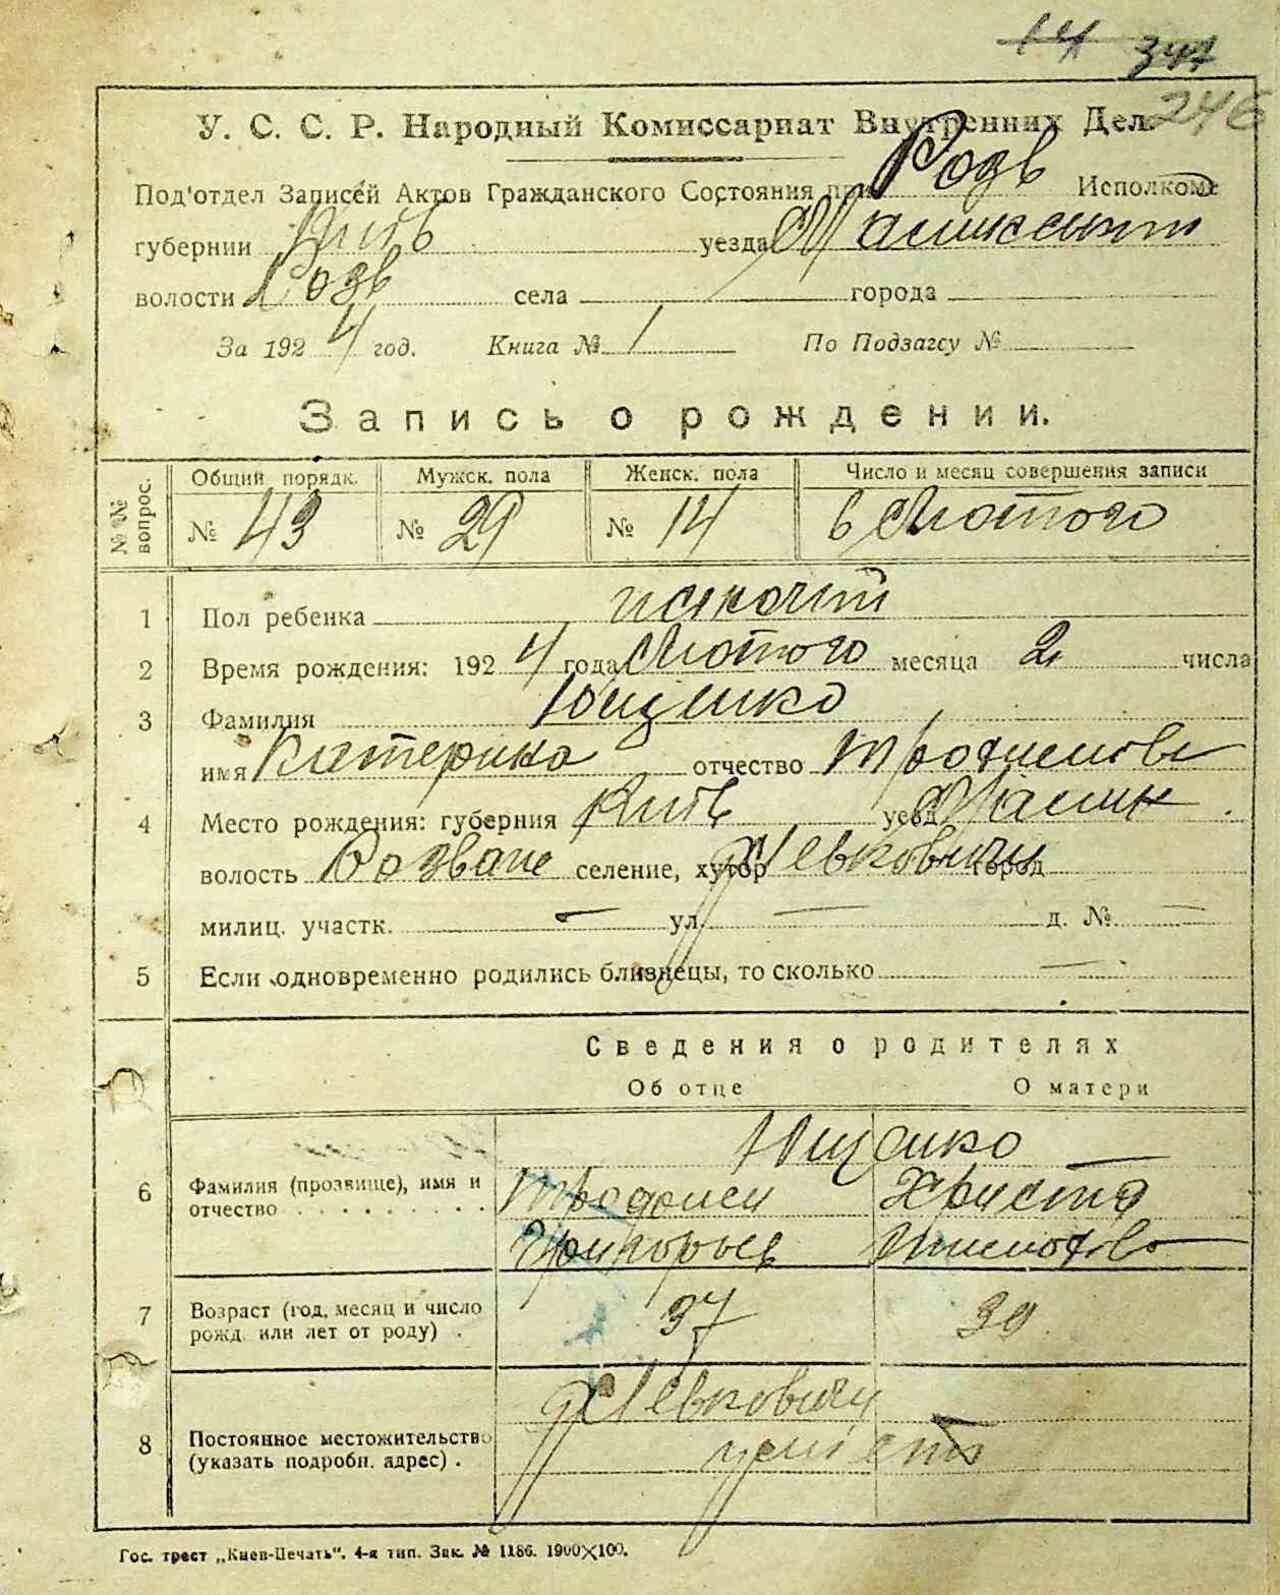 14 347
246
У. С. С. Р. Народный Комиссариат Внутренних Дел.
Под'отдел Записей Актов Гражданского Состояния при Розв Исполкоме
губернии Київ уезда
волости Розв села города
За 1924 год. Книга № 1 По Подзагсу №
Запись о рождении.
№№ вопрос. Общий порядк. Мужск. пола Женск. пола Число и месяц совершения записи
№ 43 № 29 № 14 6 Лютого
1 Пол ребенка жіночий
2 Время рождения: 1924 года Лютого месяца 2 числа
3 Фамилия Ющенко
имя Катерина отчество Трохимова
4 Место рождения: губерния Київ уезд
волость Розваж селение, хутор Левковичи город
милиц. участк. — ул. — д. № —
5 Если одновременно родились близнецы, то сколько —
Сведения о родителях
Об отце О матери
Ющенко
6 Фамилия (прозвище), имя и Христя
отчество . . . . . . . . . . Григорьев
7 Возраст (год, месяц и число 37 39
рожд. или лет от роду) .
Левковичи
8 Постоянное местожительство
(указать подробн. адрес) .
Гос. трест „Киев-Печать". 4-я тип. Зак. № 1186. 1900×100.